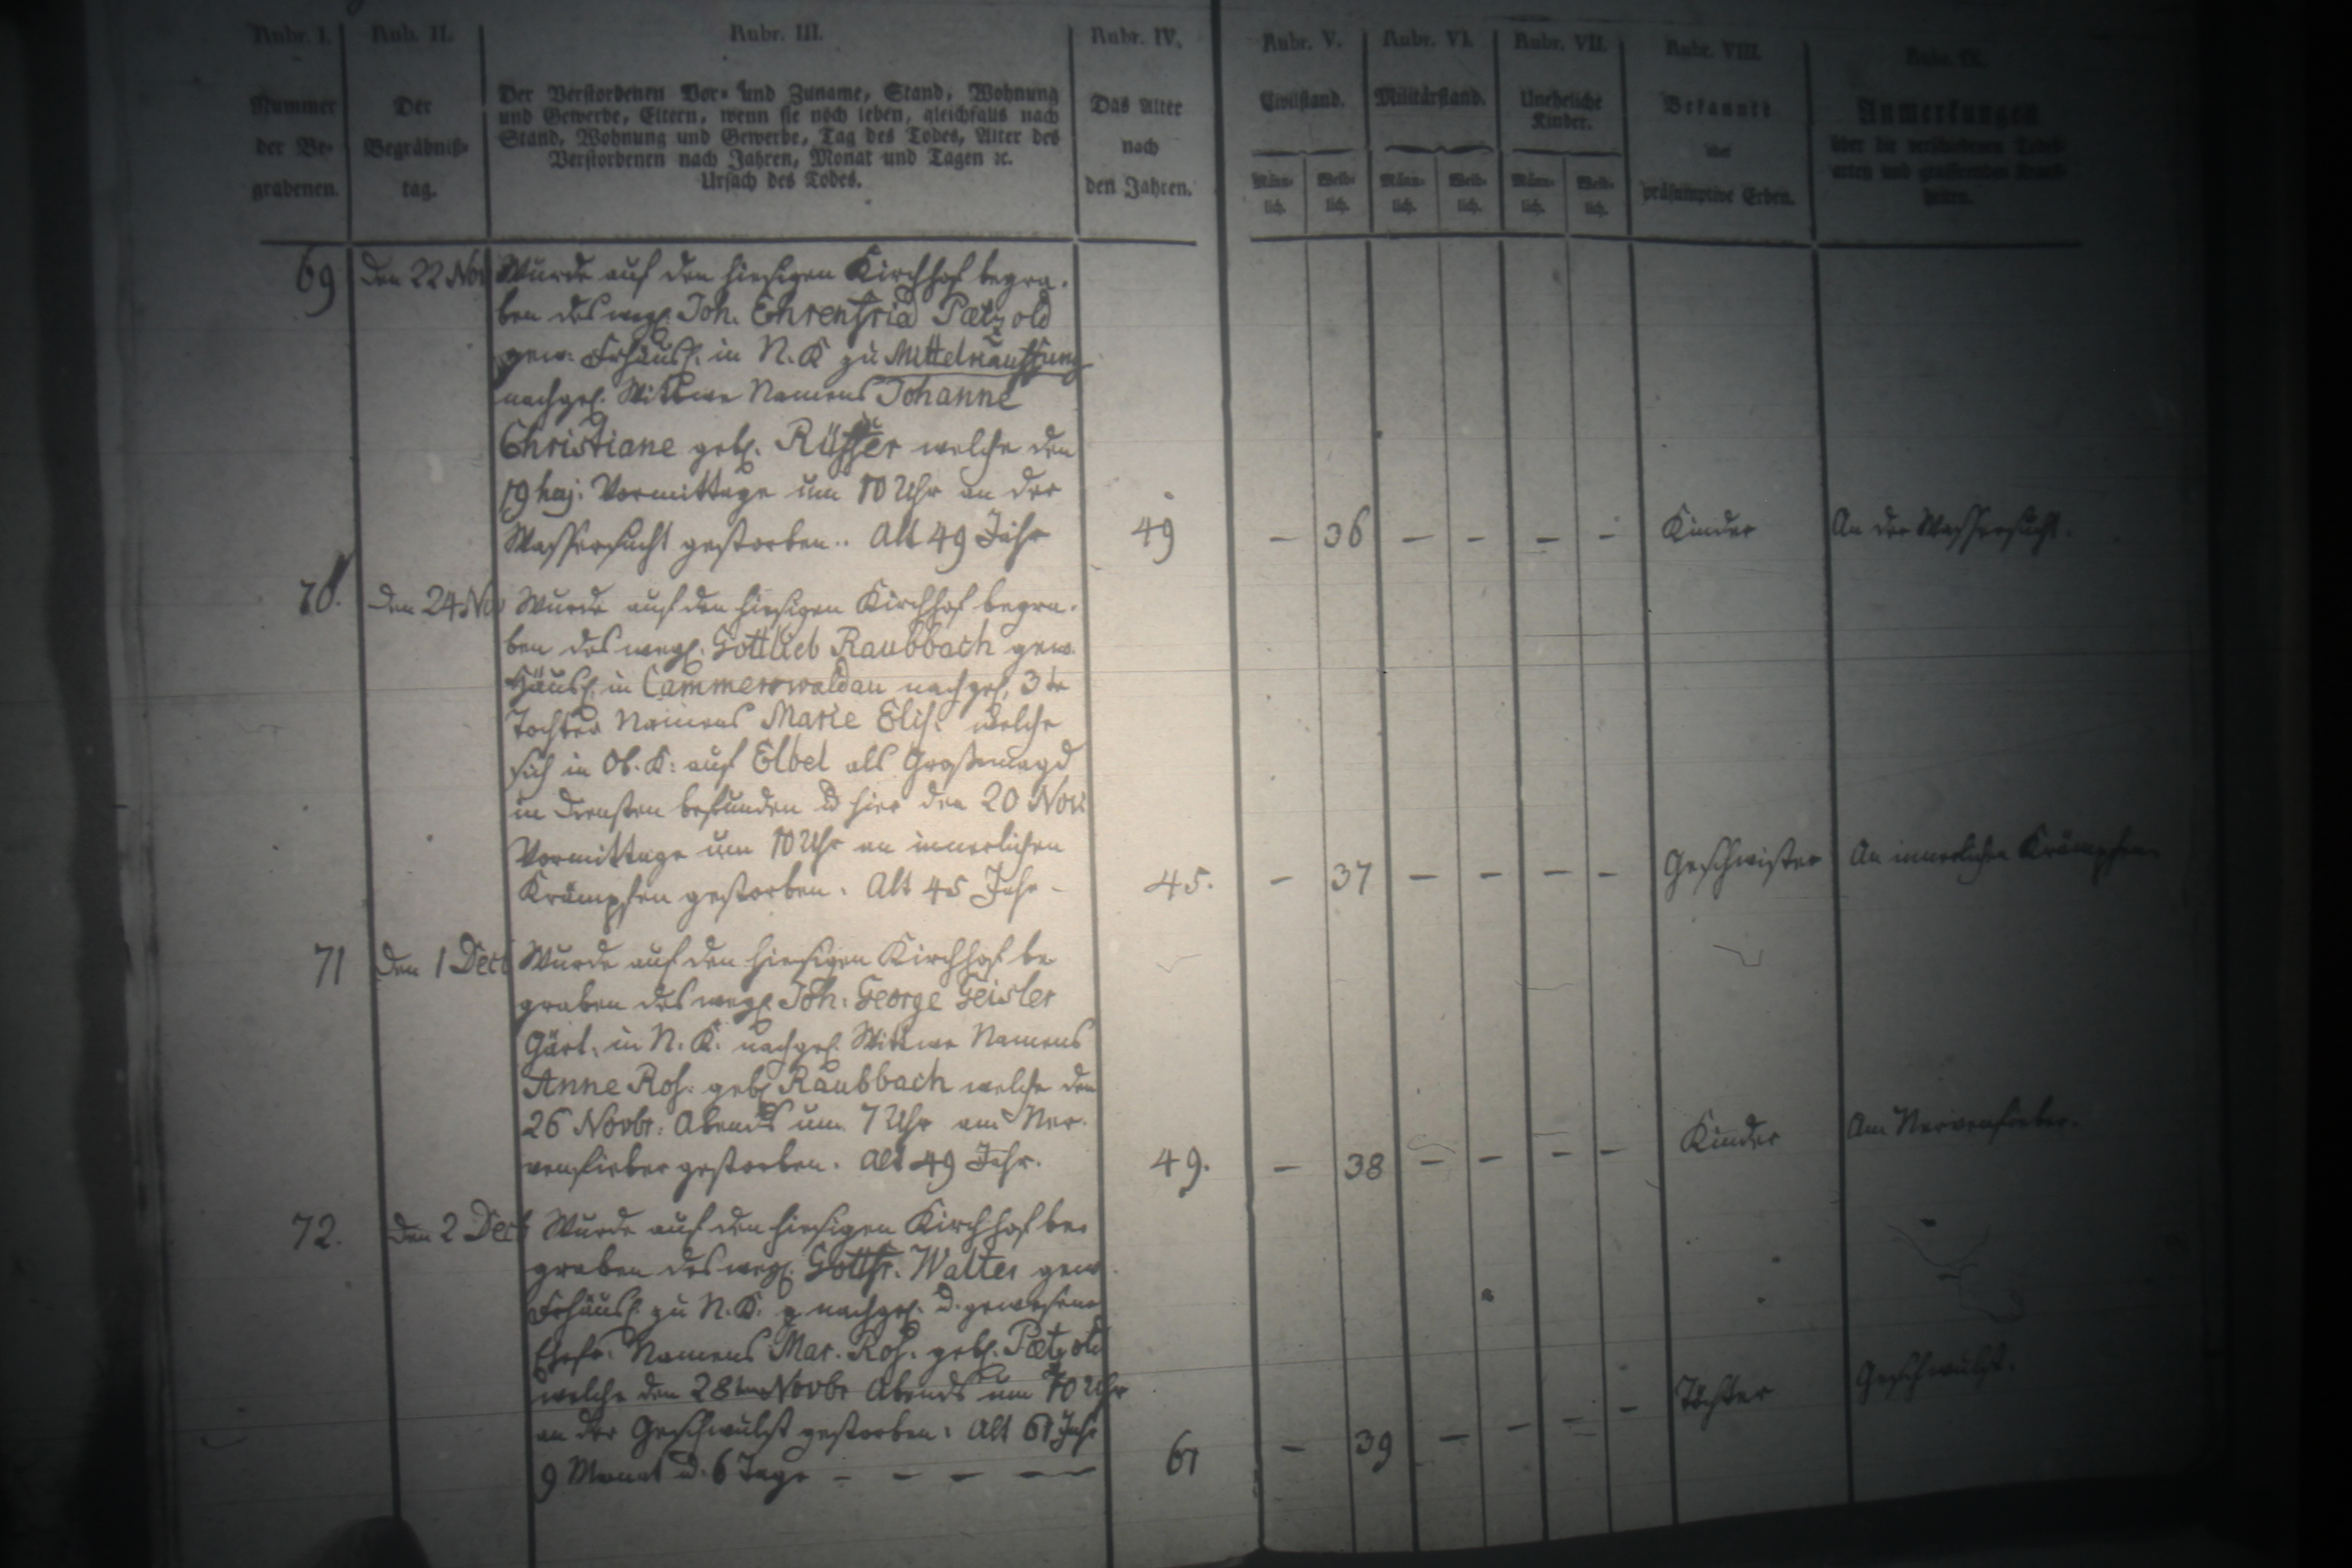 Rubr. I.
Nummer
der Be-
grabenen.
Rub. II.
Der
Begräbniß-
tag.
Rubr. III.
Der Verstorbenen Vor- und Zuname, Stand, Wohnung
und Gewerbe, Eltern, wenn sie noch leben, gleichfalls nach
Stand, Wohnung und Gewerbe, Tag des Todes, Alter des
Verstorbenen nach Jahren, Monat und Tagen ꝛc.
Ursach des Todes.
Rubr. IV.
Das Alter
nach
den Jahren.
Rubr. V.
Civilstand.
Männ-
lich.
Weib-
lich.
Rubr. VI.
Militärstand.
Männ-
lich.
Weib-
lich.
Rubr. VII.
Uneheliche
Kinder.
Männ-
lich.
Weib-
lich.
Rubr. VIII.
Bekannte
oder
präsumptive Erben.
Rubr. IX.
Anmerkungen
über die verschiedenen Todes-
arten und grassirenden Krank-
heiten.
69
den 22 Nov
Wurde auf den hiesigen Kirchhof begra-
ben des weyl. Joh. Ehrenfried Pætzold
gew. Frhäusl. in N. K zu Mittelkauffung
nachgel. Wittwe Namens Johanne
Christiane geb. Rüffer welche den
19 huj: Vormittags um 10 Uhr an der
Wassersucht gestorben. Alt 49 Jahr
49
– 36 – – – –
Kinder
An der Wassersucht.
70.
den 24 Nov
Wurde auf den hiesigen Kirchhof begra-
ben des weyl. Gottlieb Raubbach gew.
Häusl. in Cammerswaldau nachgel. 3te
Tochter Namens Marie Elis: welche
sich in Ob. K: auf Elbel als Großmagd
in Diensten befunden u hier den 20 Nov
Vormittags um 10 Uhr an innerlichen
Krämpfen gestorben. Alt 45 Jahr –
45.
– 37 – – – –
Geschwister
An innerlichen Krämpfen
71
den 1 Decb
Wurde auf den hiesigen Kirchhof be
graben des weyl. Joh: George Geisler
Gärt. in N. K. nachgel. Wittwe Namens
Anne Ros: geb. Raubbach welche den
26 Novbr: Abends um 7 Uhr am Ner-
venfieber gestorben. Alt 49 Jahr.
49.
– 38 – – – –
Kinder
Am Nervenfieber.
72.
den 2 Decb
Wurde auf den hiesigen Kirchhof be-
graben des weyl. Gottfr. Walter gew.
Frhäusl. zu N. K. nachgel. u. gewesene
Ehefr. Namens Mar. Ros. geb. Pætzold
welche den 28ten Novbr Abends um 10 Uhr
an der Geschwulst gestorben: Alt 61 Jahr
9 Monat u. 6 Tage – – – –
61
– 39 – – – –
Töchter
Geschwulst.